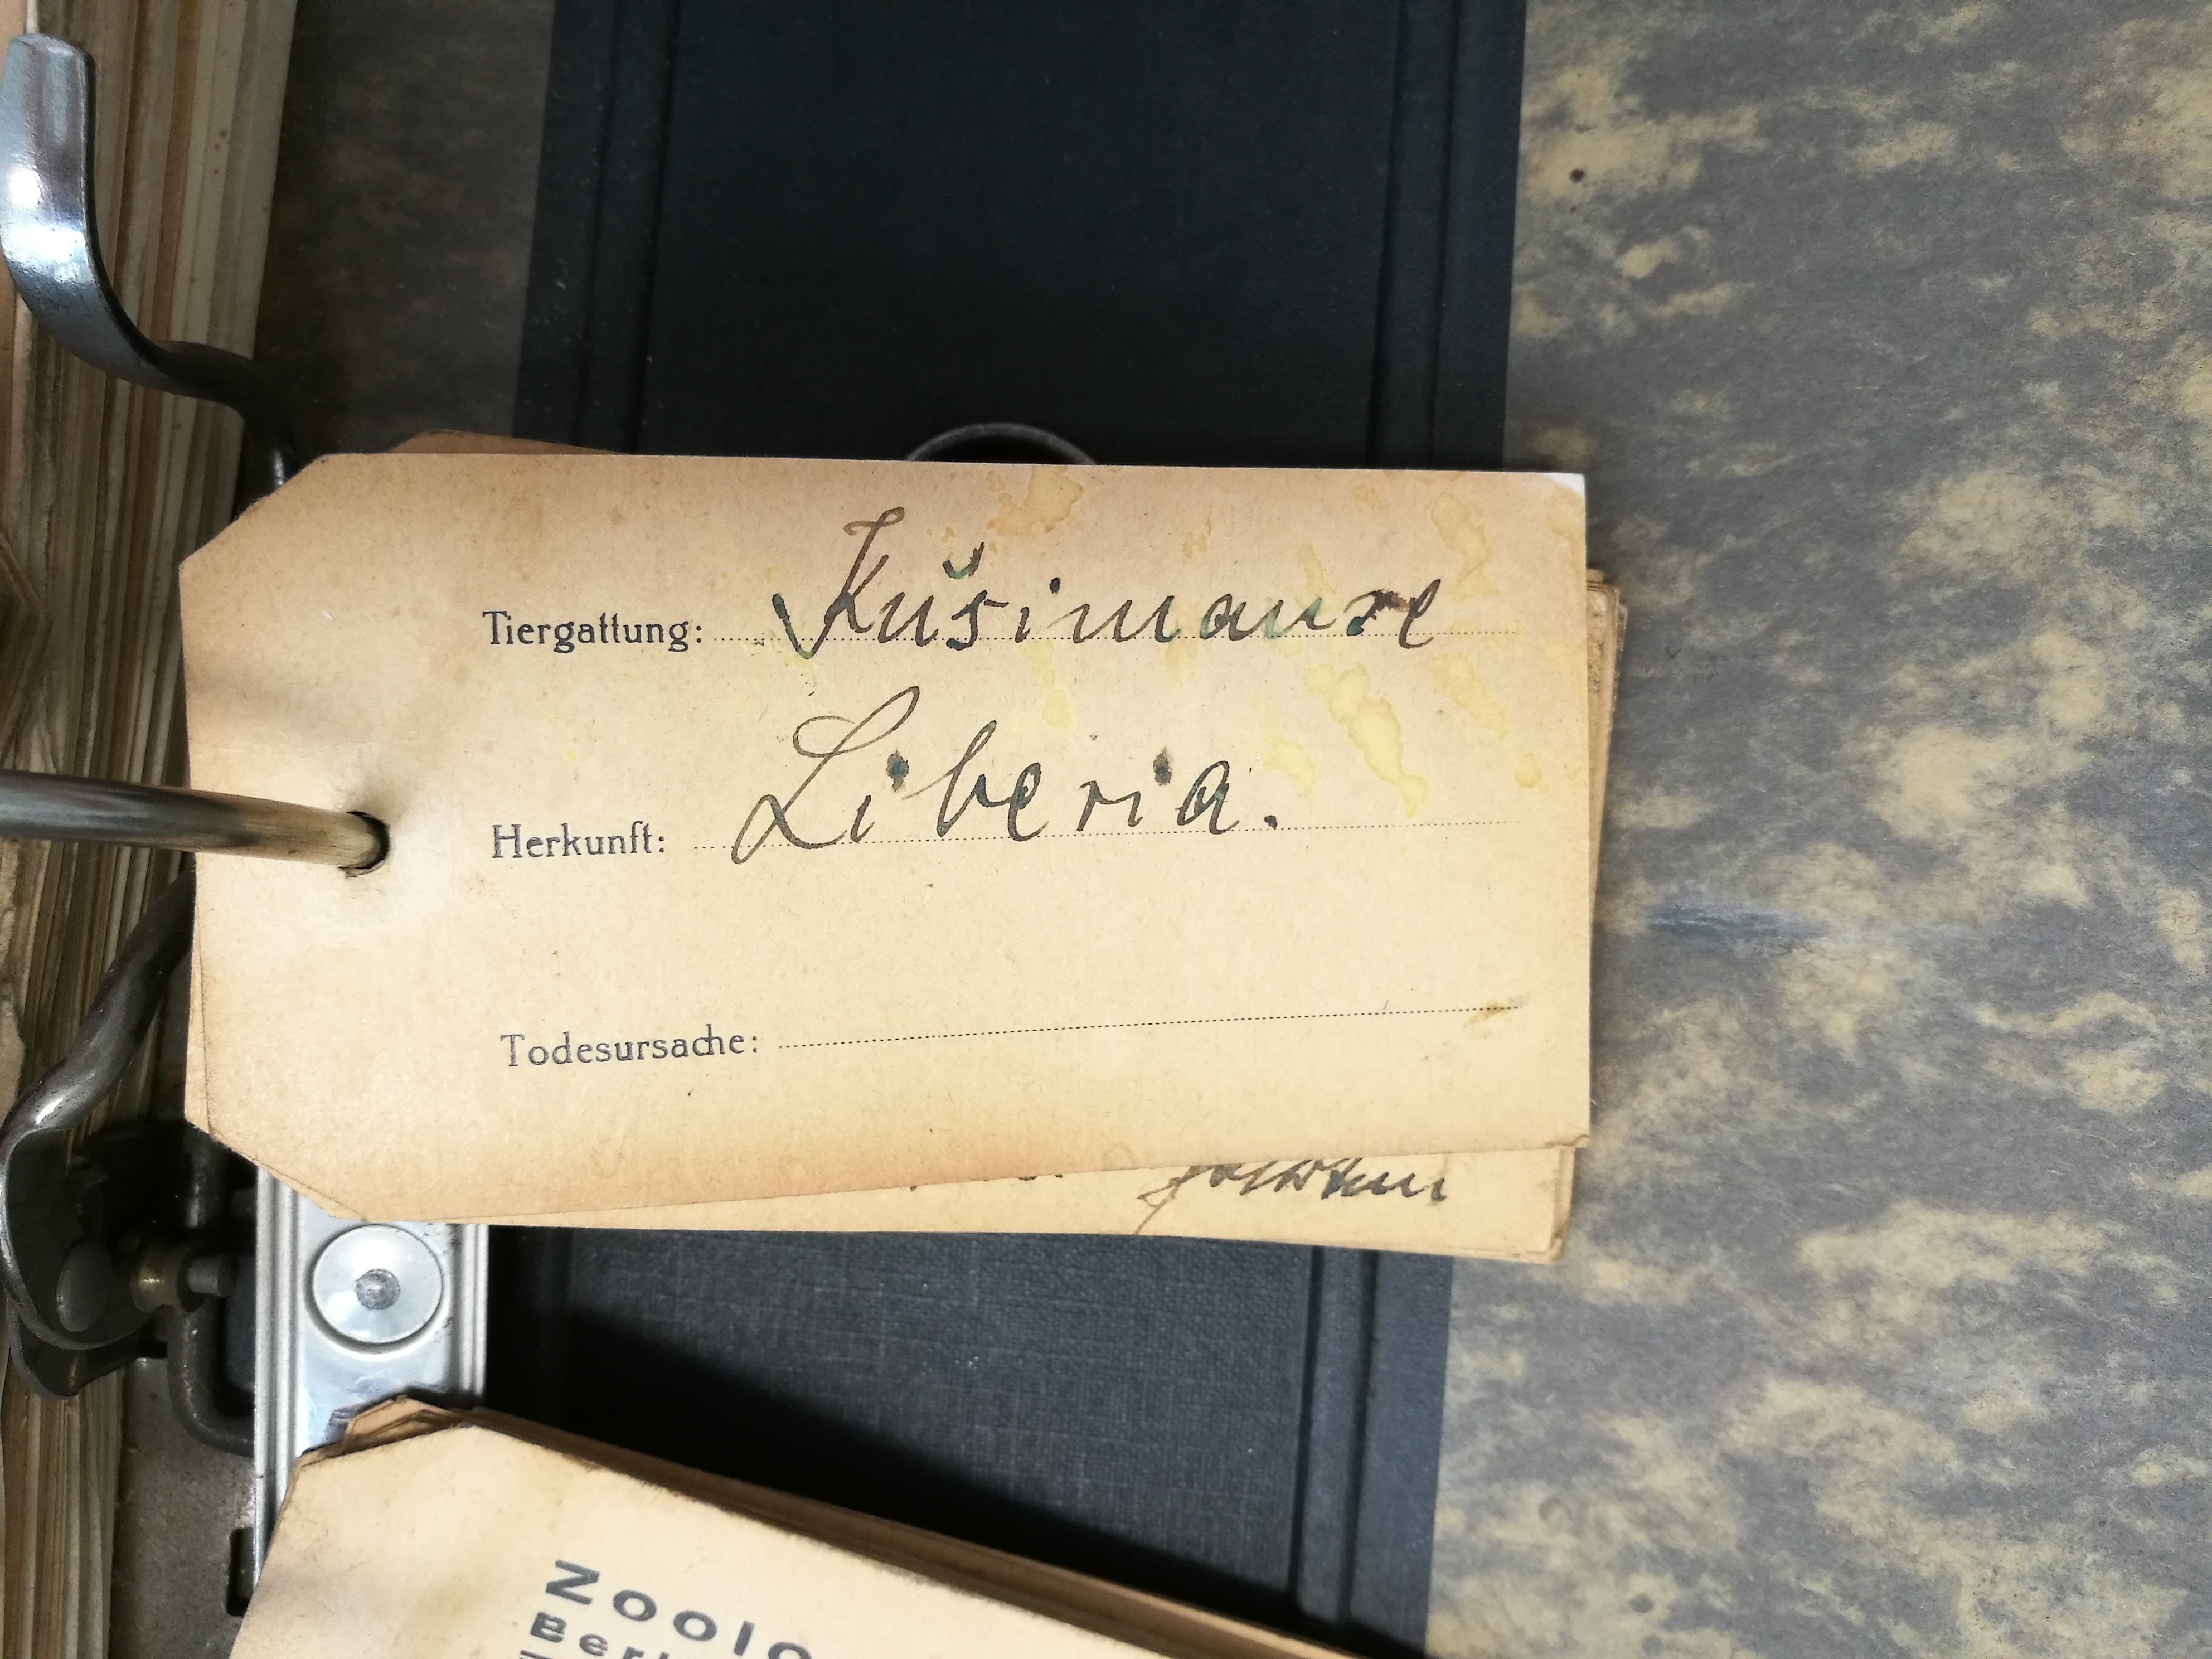 Tiergattung: Kusimanse
Herkunft: Liberia.
Todesursache:
Zoolo
Berl